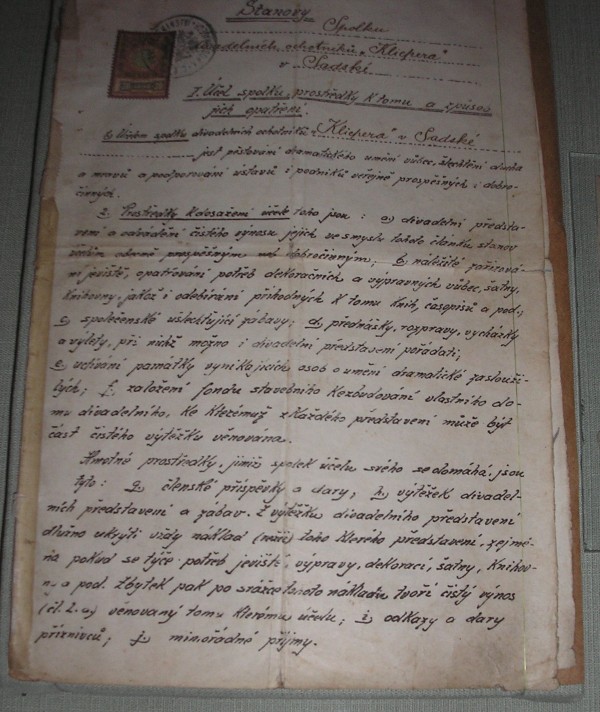 Stanovy
Spolku
divadelních ochotníků „Klicpera"
v Sadské
I. Účel spolku, prostředky k tomu a způsob
jich opatření.
1.) Účelem spolku divadelních ochotníků „Klicpera" v Sadské
jest pěstování dramatického umění vůbec, šlechtění ducha
a mravů a podporování ústavů i podniků veřejně prospěšných i dobro-
činných.
2. Prostředky k dosažení účele toho jsou: a) divadelní předsta-
vení a odvádění čistého výnosu jejich ve smyslu tohoto článku stanov
účelům obecně prospěšným neb dobročinným; b) náležité zařizová-
ní jeviště, opatřování potřeb dekoračních a výpravných vůbec, šatny,
knihovny, jakož i odebírání příhodných k tomu knih, časopisů a pod.;
c) společenské ušlechťující zábavy; d) přednášky, rozpravy, vycházky
a výlety, při nichž možno i divadelní představení pořádati;
e) uctívání památky vynikajících osob o umění dramatické zaslouži-
lých; f) založení fondu stavebního ke zbudování vlastního do-
mu divadelního, ke kterémuž z každého představení může být
část čistého výtěžku věnována.
Hmotné prostředky, jimiž spolek účelu svého se domáhá, jsou
tyto: g) členské příspěvky a dary; h) výtěžek divadel-
ních představení a zábav. Z výtěžku divadelního představení
dlužno ukrýti vždy náklad (režii) toho kterého představení, zejmé-
na pokud se týče potřeb jeviště, výpravy, dekorací, šatny, knihov-
ny a pod. Zbytek pak po srážce tohoto nákladu tvoří čistý výnos
(čl. 2. a) věnovaný tomu kterému účelu; i) odkazy a dary
příznivců; j) mimořádné příjmy.